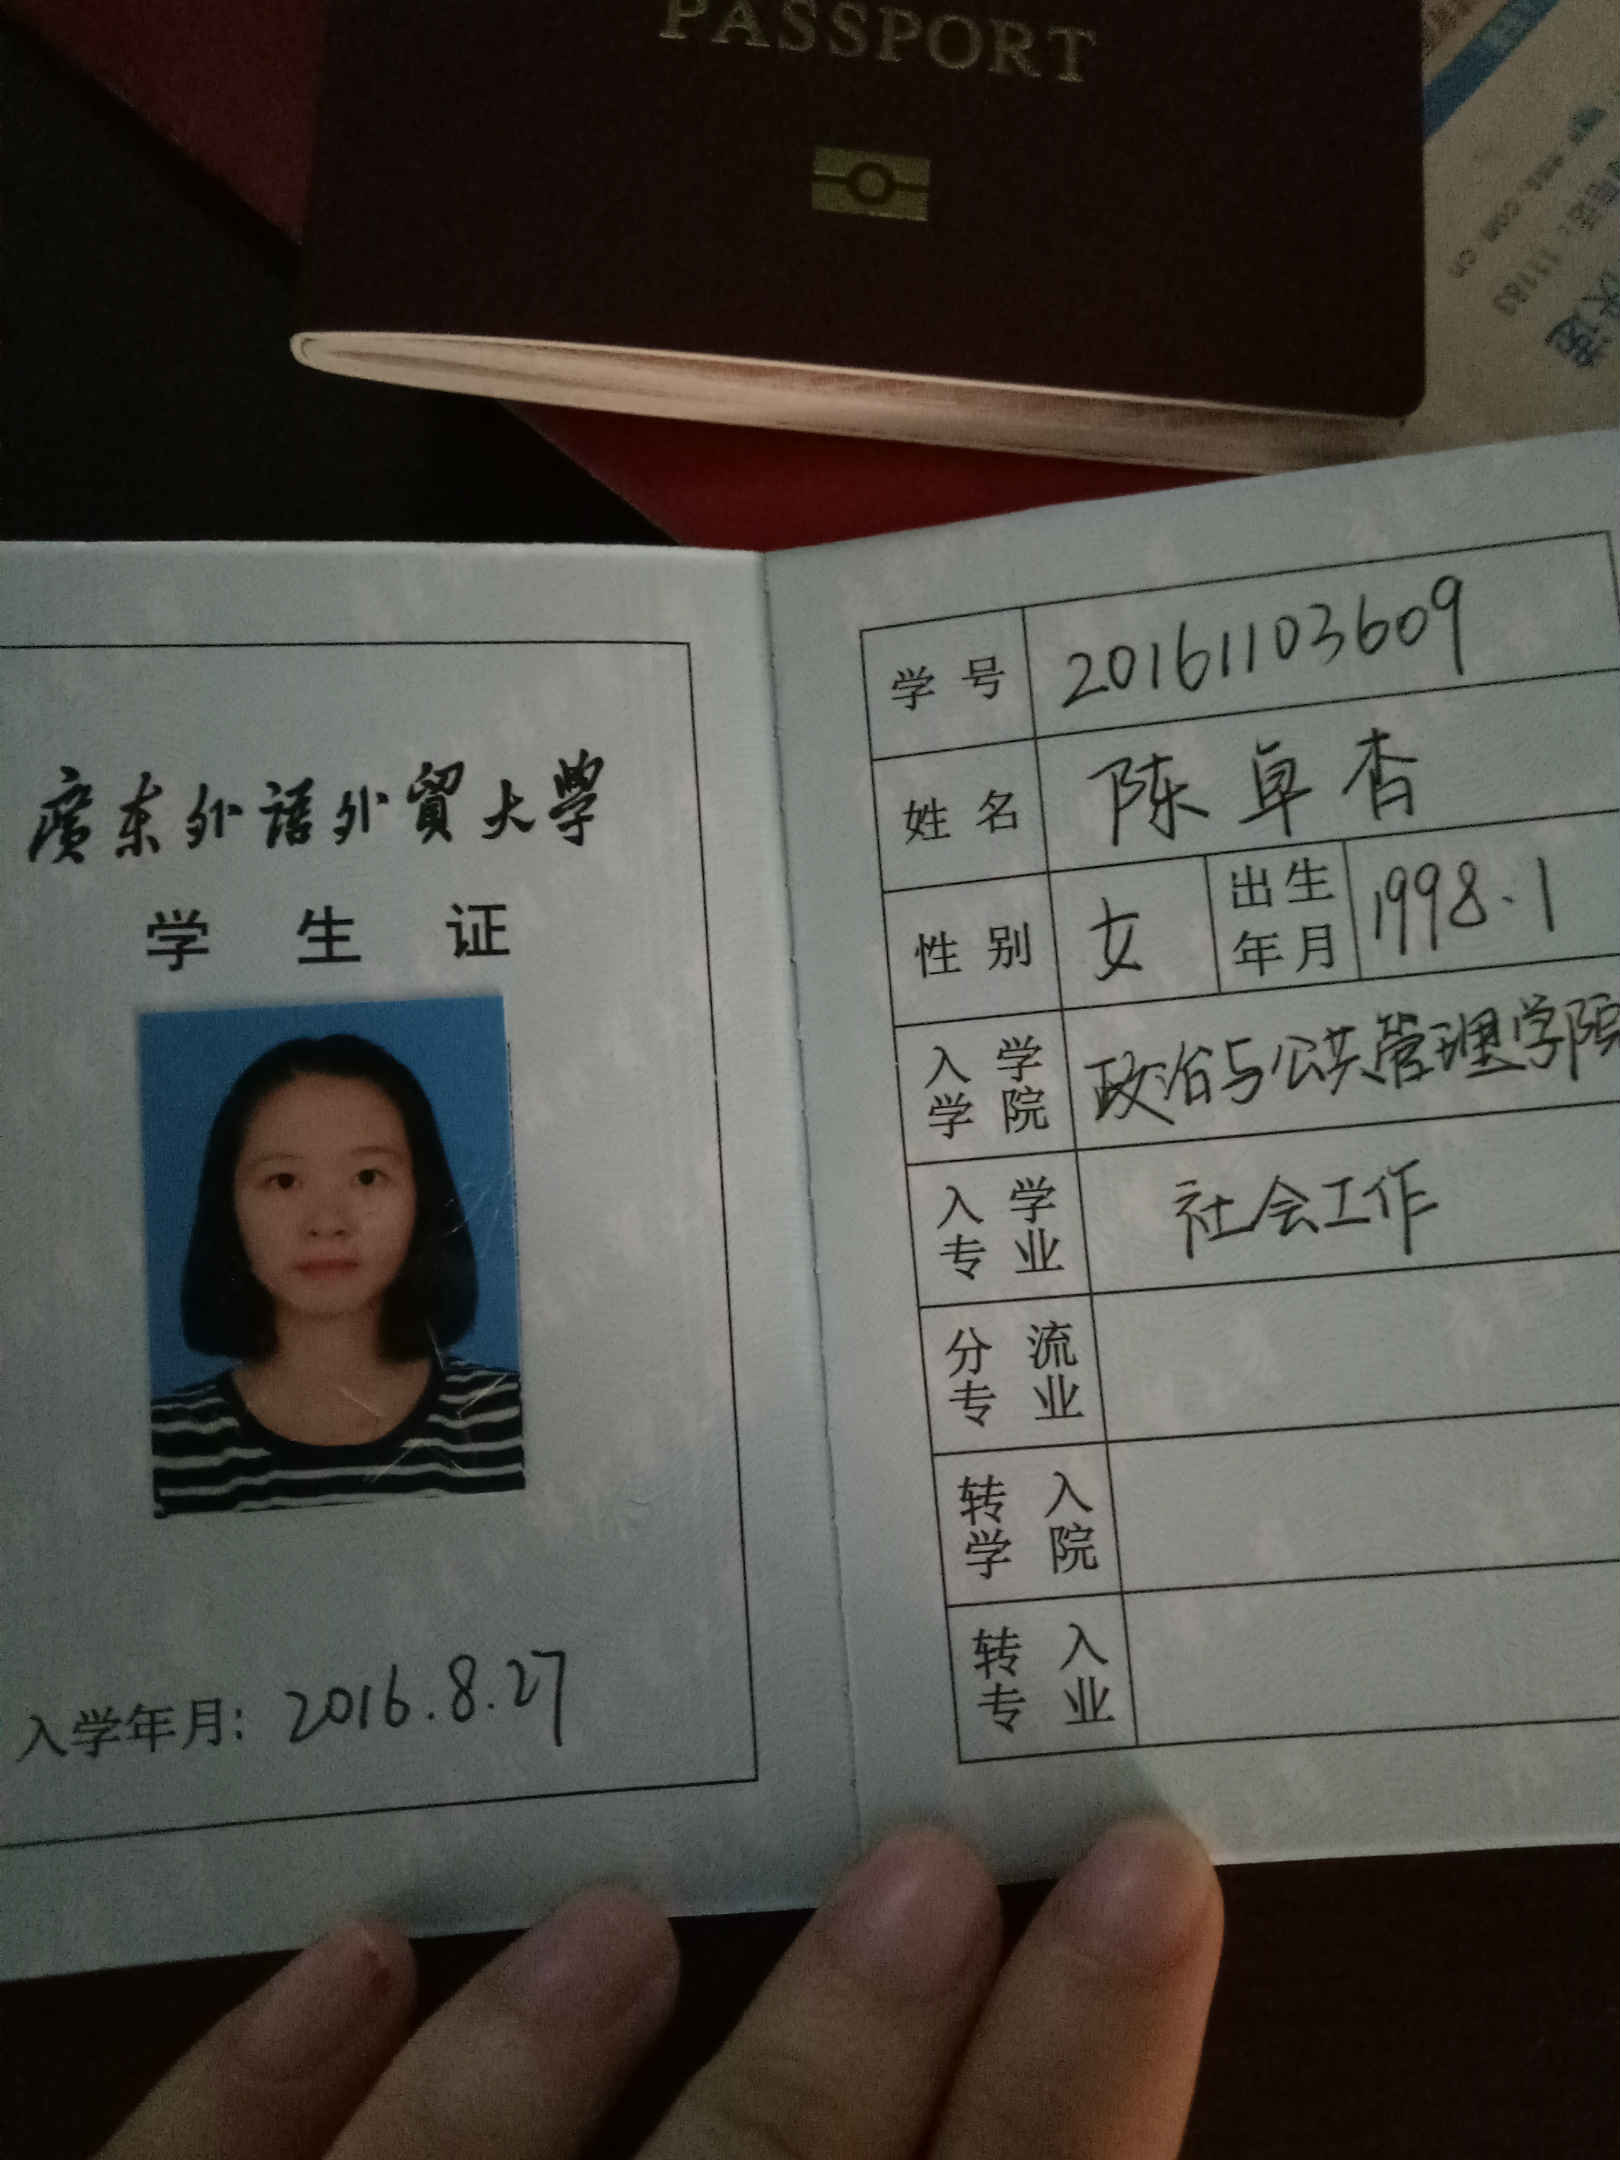 PASSPORT
11183
廣东外语外貿大学
学生证
入学年月: 2016.8.27
学号 20161103609
姓名 陈卓杏
性别 女 出生年月 1998.1
入学学院 政治与公共管理学院
入学专业 社会工作
分流专业
转入学院
转入专业